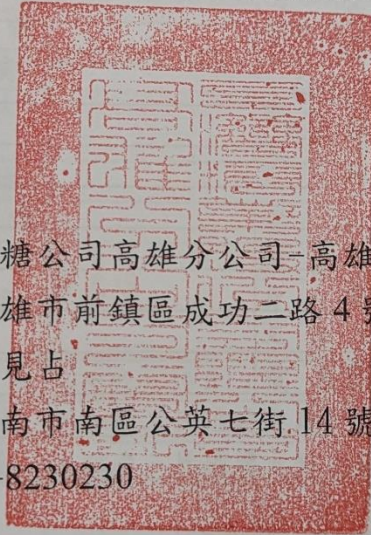 糖公司高雄分公司-高雄
雄市前鎮區成功二路 4 號
見占
南市南區公英七街 14 號
-8230230